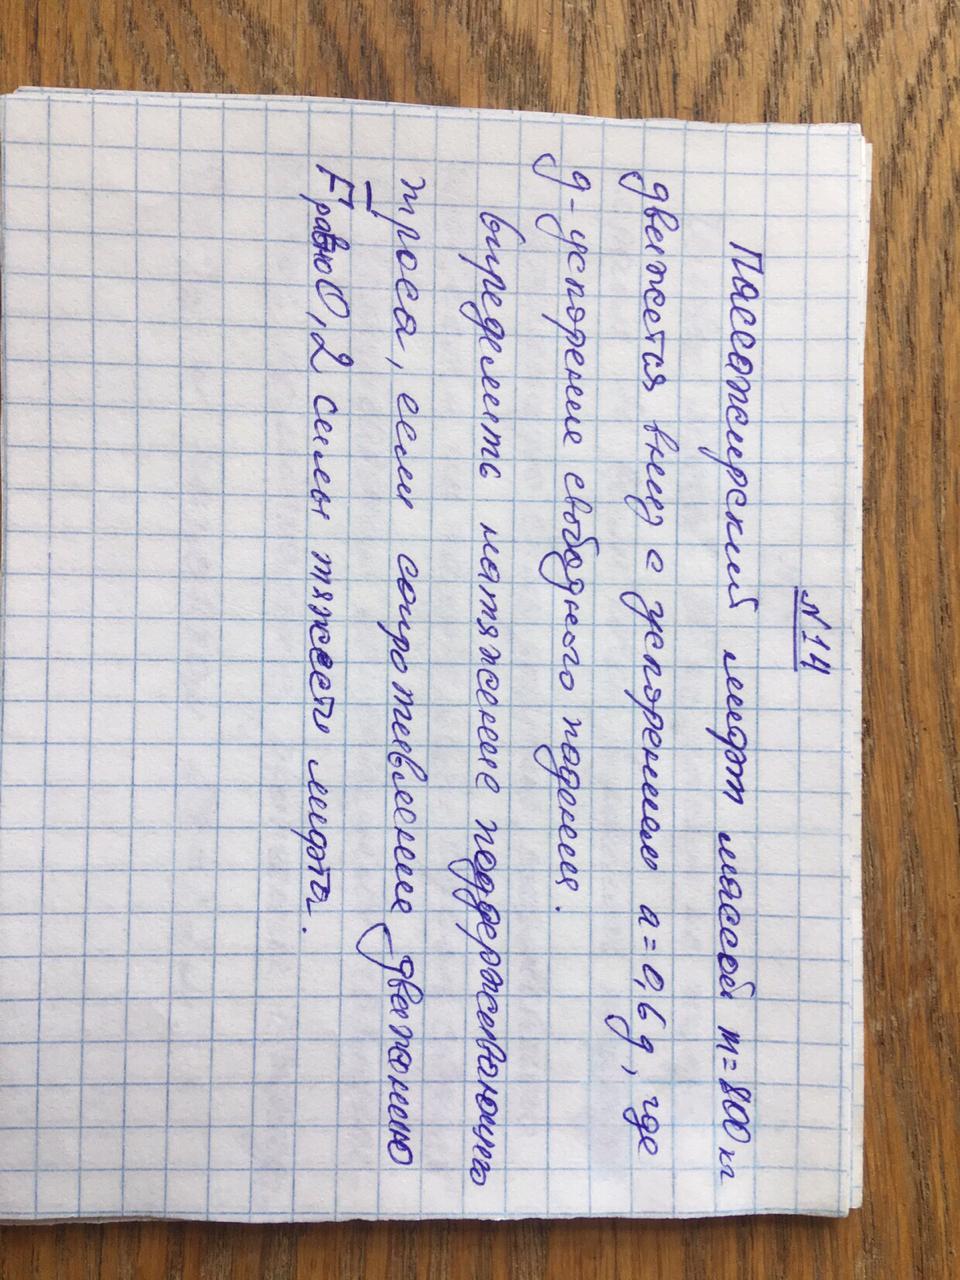 №14
Пассажирский лифт массой m=800 кг
движется вниз с ускорением a=0,6g, где
g-ускорение свободного падения.
Определить натяжение поддерживающего
троса, если сопротивление движению
F равно 0,2 силы тяжести лифта.